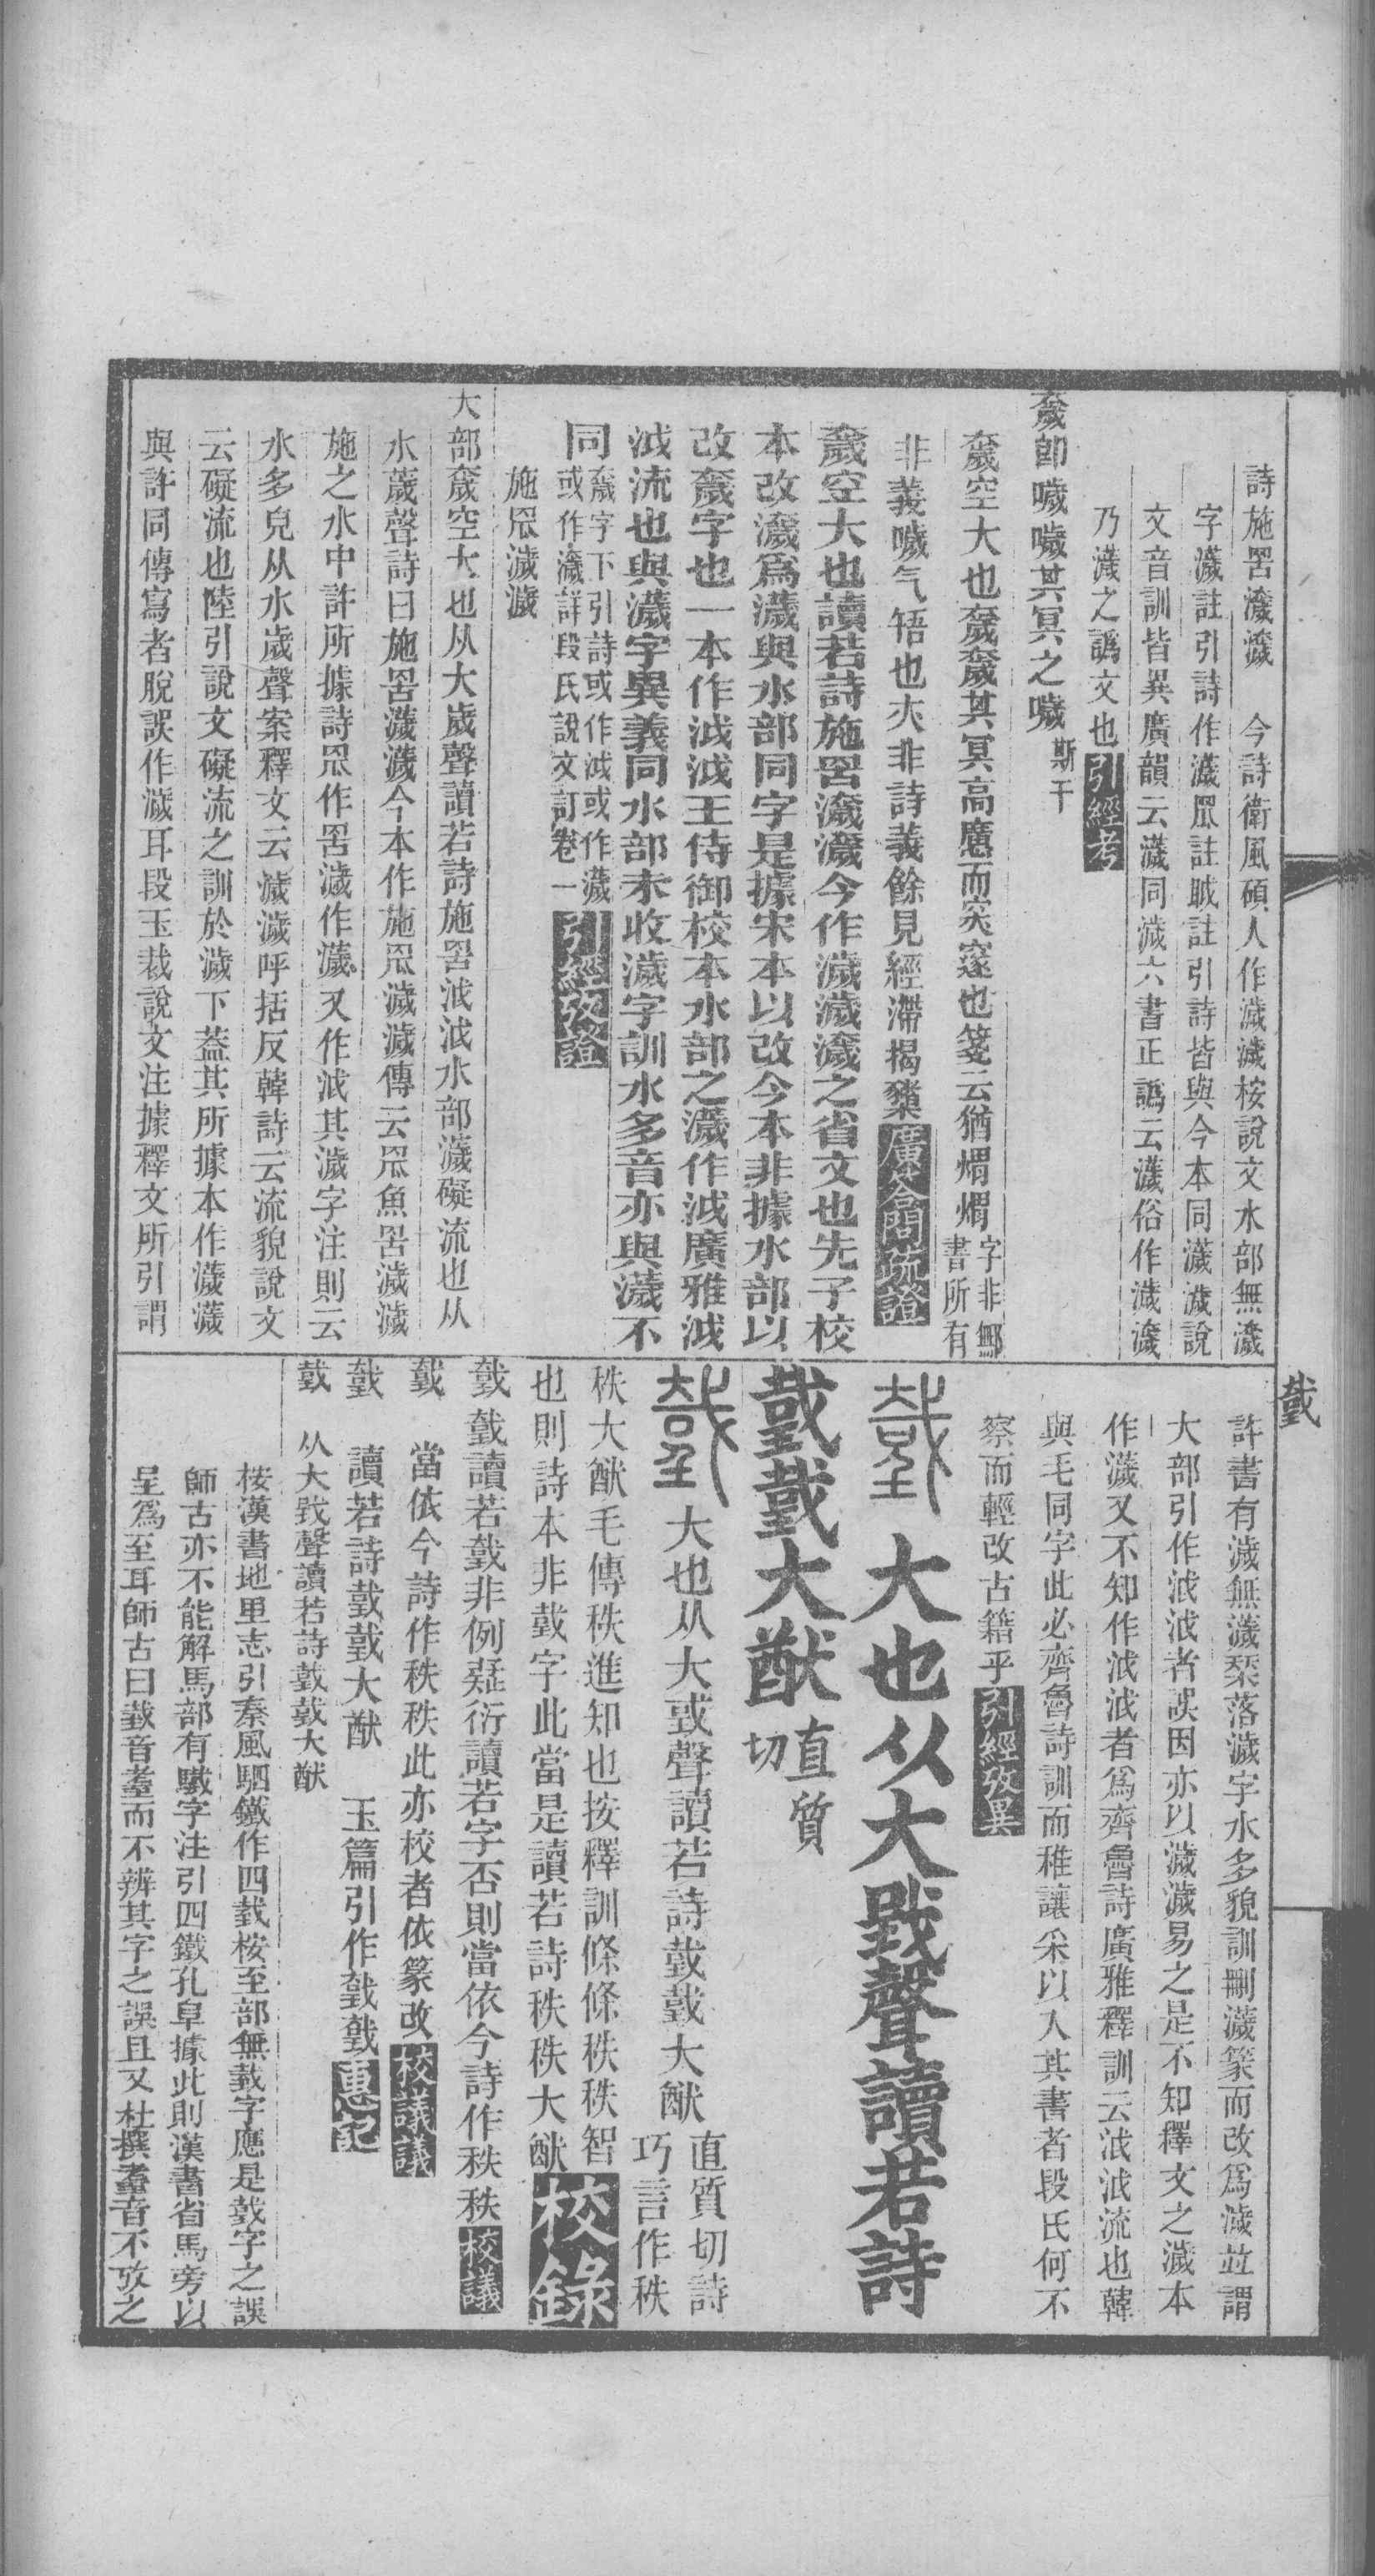 詩施罟濊濊　今詩衛風碩人作濊濊桉說文水部無濊
字濊註引詩作濊眾註眓註引詩皆與今本同濊濊說
文音訓皆異廣韻云濊同濊六書正譌云濊俗作濊濊
乃濊之譌文也引經考
奯卽噦噦其冥之噦斯干
奯空大也奯奯其冥高應而突窔也箋云猶煟煟字非鄦
書所有
非義噦气啎也夶非詩義餘見經滯揭櫫廣答問疏證
奯空大也讀若詩施罟濊濊今作濊濊濊之省文也先子校
本改濊爲濊與水部同字是據宋本以改今本非據水部以
改奯字也一本作泧泧王侍御校本水部之濊作泧廣雅泧
泧流也與濊字異義同水部未收濊字訓水多音亦與濊不
同奯字下引詩或作泧或作濊
或作濊詳段氏說文訂卷一引經攷證
施罛濊濊
大部奯空大也从大歲聲讀若詩施罟泧泧水部濊礙流也从
水薉聲詩曰施罟濊濊今本作施罛濊濊傳云罛魚罟濊濊
施之水中許所據詩罛作罟濊作濊又作泧其濊字注則云
水多皃从水歲聲案釋文云濊濊呼括反韓詩云流貌說文
云礙流也陸引說文礙流之訓於濊下蓋其所據本作濊濊
與許同傳寫者脫誤作濊耳段玉裁說文注據釋文所引謂
𢧤
許書有濊無濊栞落濊字水多貌訓刪濊篆而改爲濊竝謂
大部引作泧泧者誤因亦以濊濊易之是不知釋文之濊本
作濊又不知作泧泧者爲齊魯詩廣雅釋訓云泧泧流也韓
與毛同字此必齊魯詩訓而稚讓采以入其書者段氏何不
察而輕改古籍乎引經攷異
𢧤大也从大𢧜聲讀若詩
𢧤𢧤大猷直質
切
𢧤大也从大或聲讀若詩𢧤𢧤大猷直質切詩
巧言作秩
秩大猷毛傳秩進知也按釋訓條條秩秩智
也則詩本非𢧤字此當是讀若詩秩秩大猷校錄
𢧤𢧤讀若𢧤非例疑衍讀若字否則當依今詩作秩秩校議
𢧤當依今詩作秩秩此亦校者依篆改校議議
𢧤讀若詩𢧤𢧤大猷　玉篇引作𢧤𢧤惠記
𢧤从大𢧜聲讀若詩𢧤𢧤大猷
桉漢書地里志引秦風駟鐵作四𢧤桉至部無𢧤字應是𢧤字之誤
師古亦不能解馬部有驖字注引四鐵孔阜據此則漢書省馬旁以
呈爲至耳師古曰𢧤音耋而不辨其字之誤且又杜撰耋音不攷之